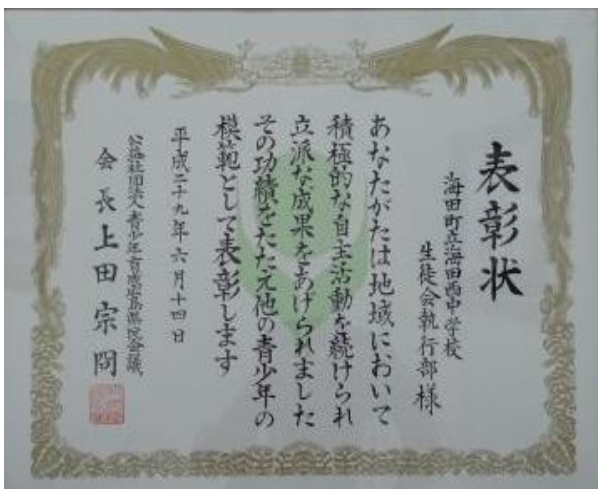 表彰状
海田町立海田西中学校
生徒会執行部 様
あなたがたは地域において
積極的な自主活動を続けられ
立派な成果をあげられました
その功績をたたえ他の青少年の
模範として表彰します
平成二十九年六月十四日
公益社団法人青少年育成広島県民会議
会長 上田宗冏